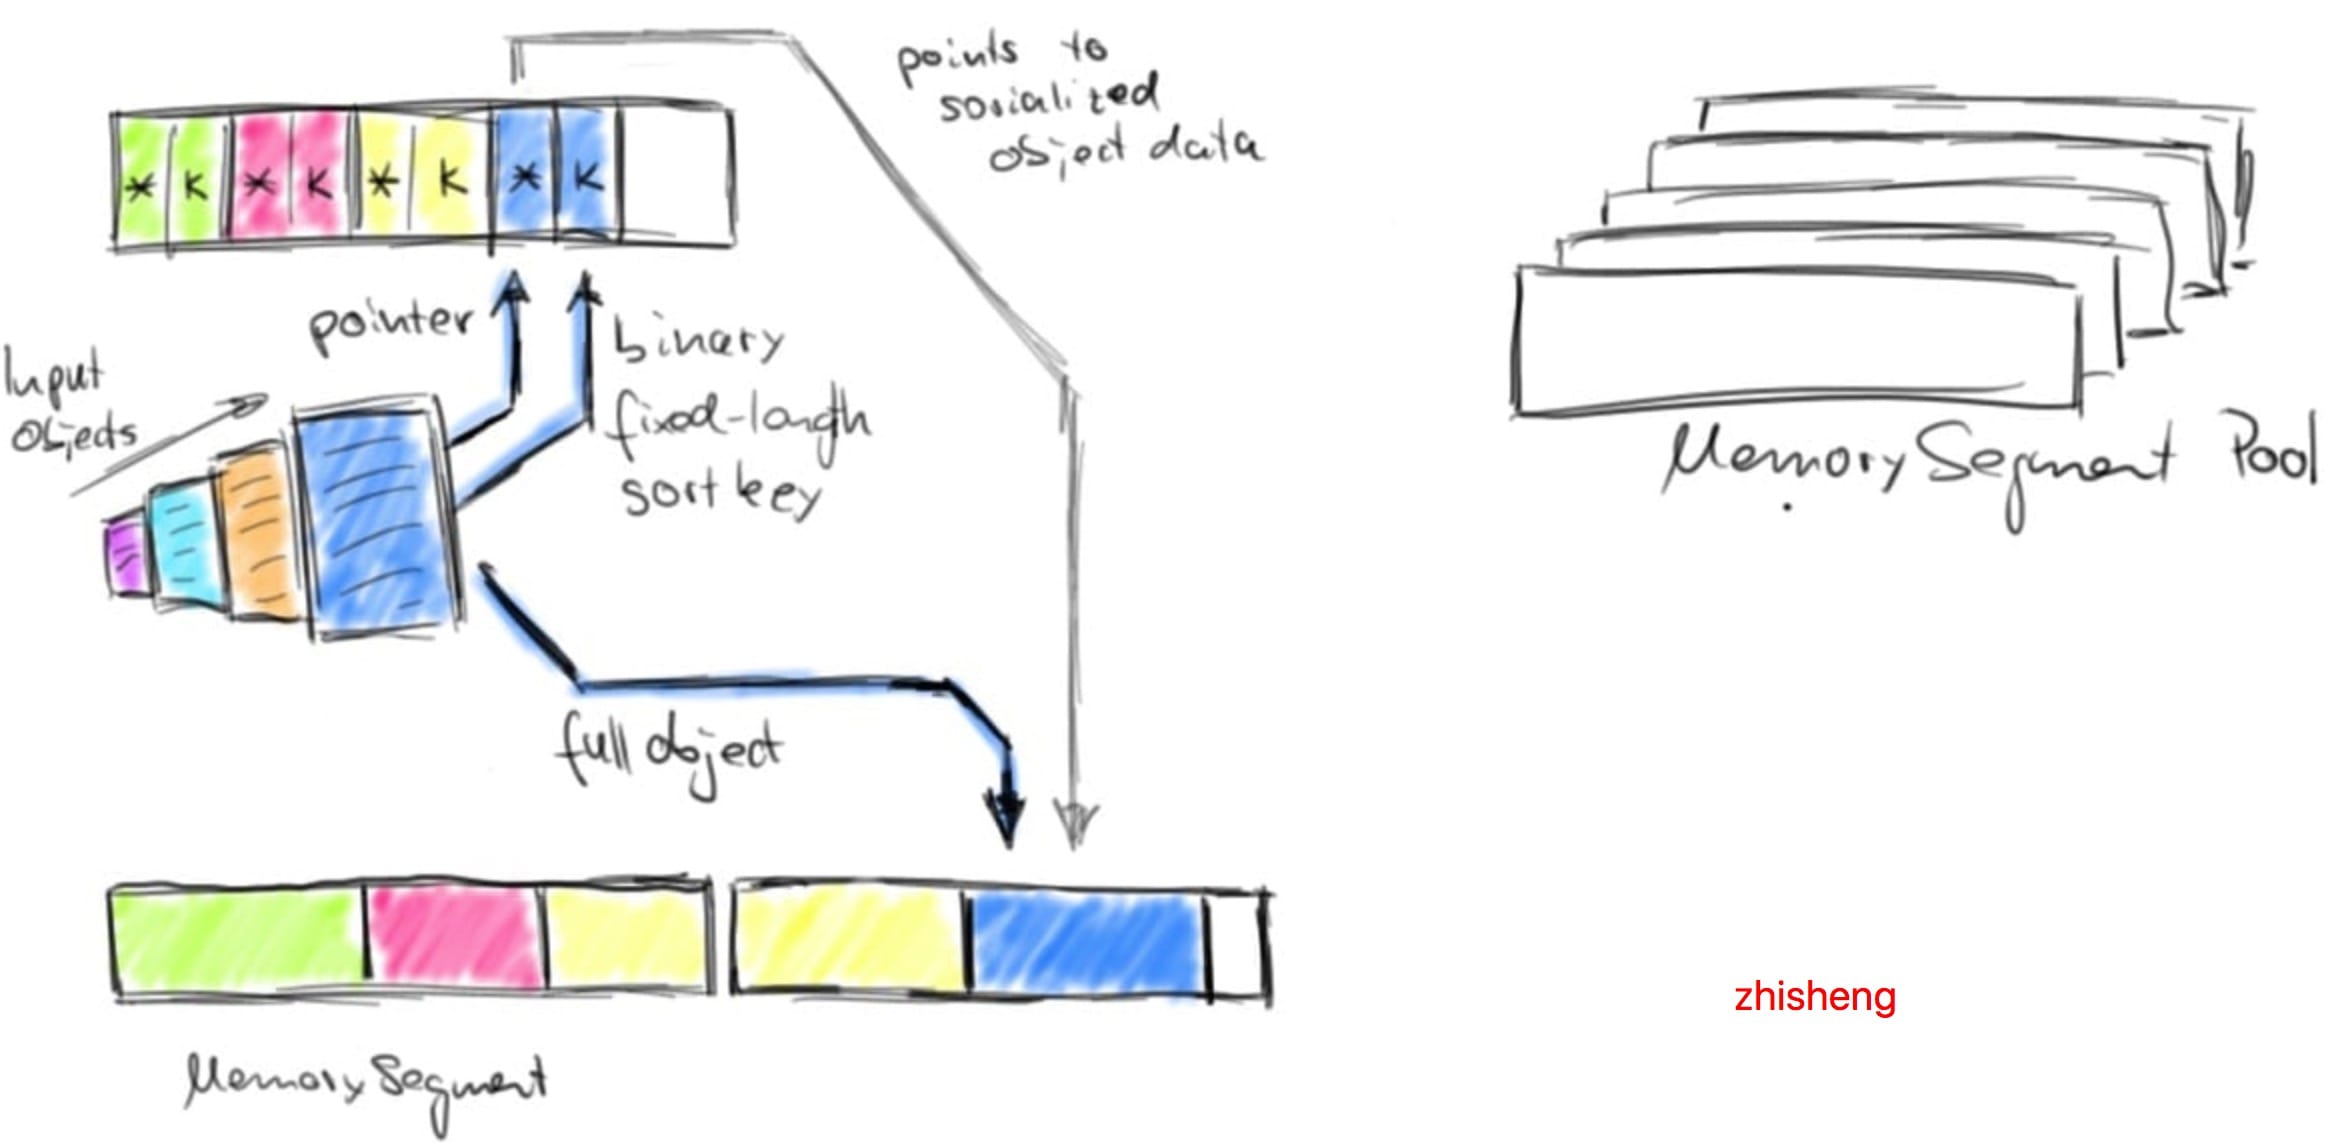 points to
serialized
object data
* K * K * K * K
pointer
binary
fixed-length
sort key
Input
Objects
full object
Memory Segment Pool
zhisheng
Memory Segment